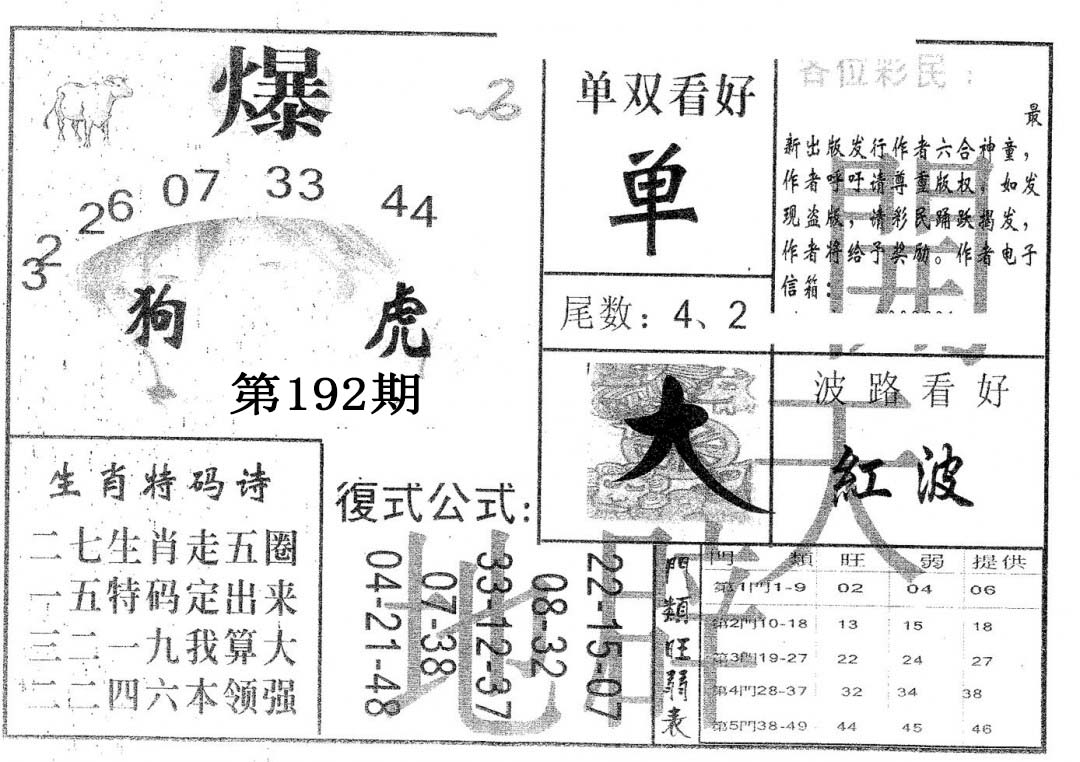 爆
32 26 07 33 44
狗 虎
第192期
单双看好
单
尾数：4、2
各位彩民：
最
新出版发行作者六合神童，
作者呼吁请尊重版权。如发
现盗版，请彩民踊跃揭发，
作者将给予奖励。作者电子
信箱：
大
波路看好
紅波
生肖特码诗
二七生肖走五圈
一五特码定出来
三二一九我算大
二二四六本领强
復式公式：
22-15-07
08-32
33-12-37
07-38
04-21-48
門類旺弱表
門 類 旺 弱 提供
第1門1-9 02 04 06
第2門10-18 13 15 18
第3門19-27 22 24 27
第4門28-37 32 34 38
第5門38-49 44 45 46